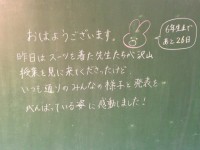 おはようございます。
6年生まで
あと26日
昨日はスーツを着た先生たちが沢山
授業を見に来てくださったけど
いつも通りのみんなの様子と発表を
がんばっている姿に感動しました!